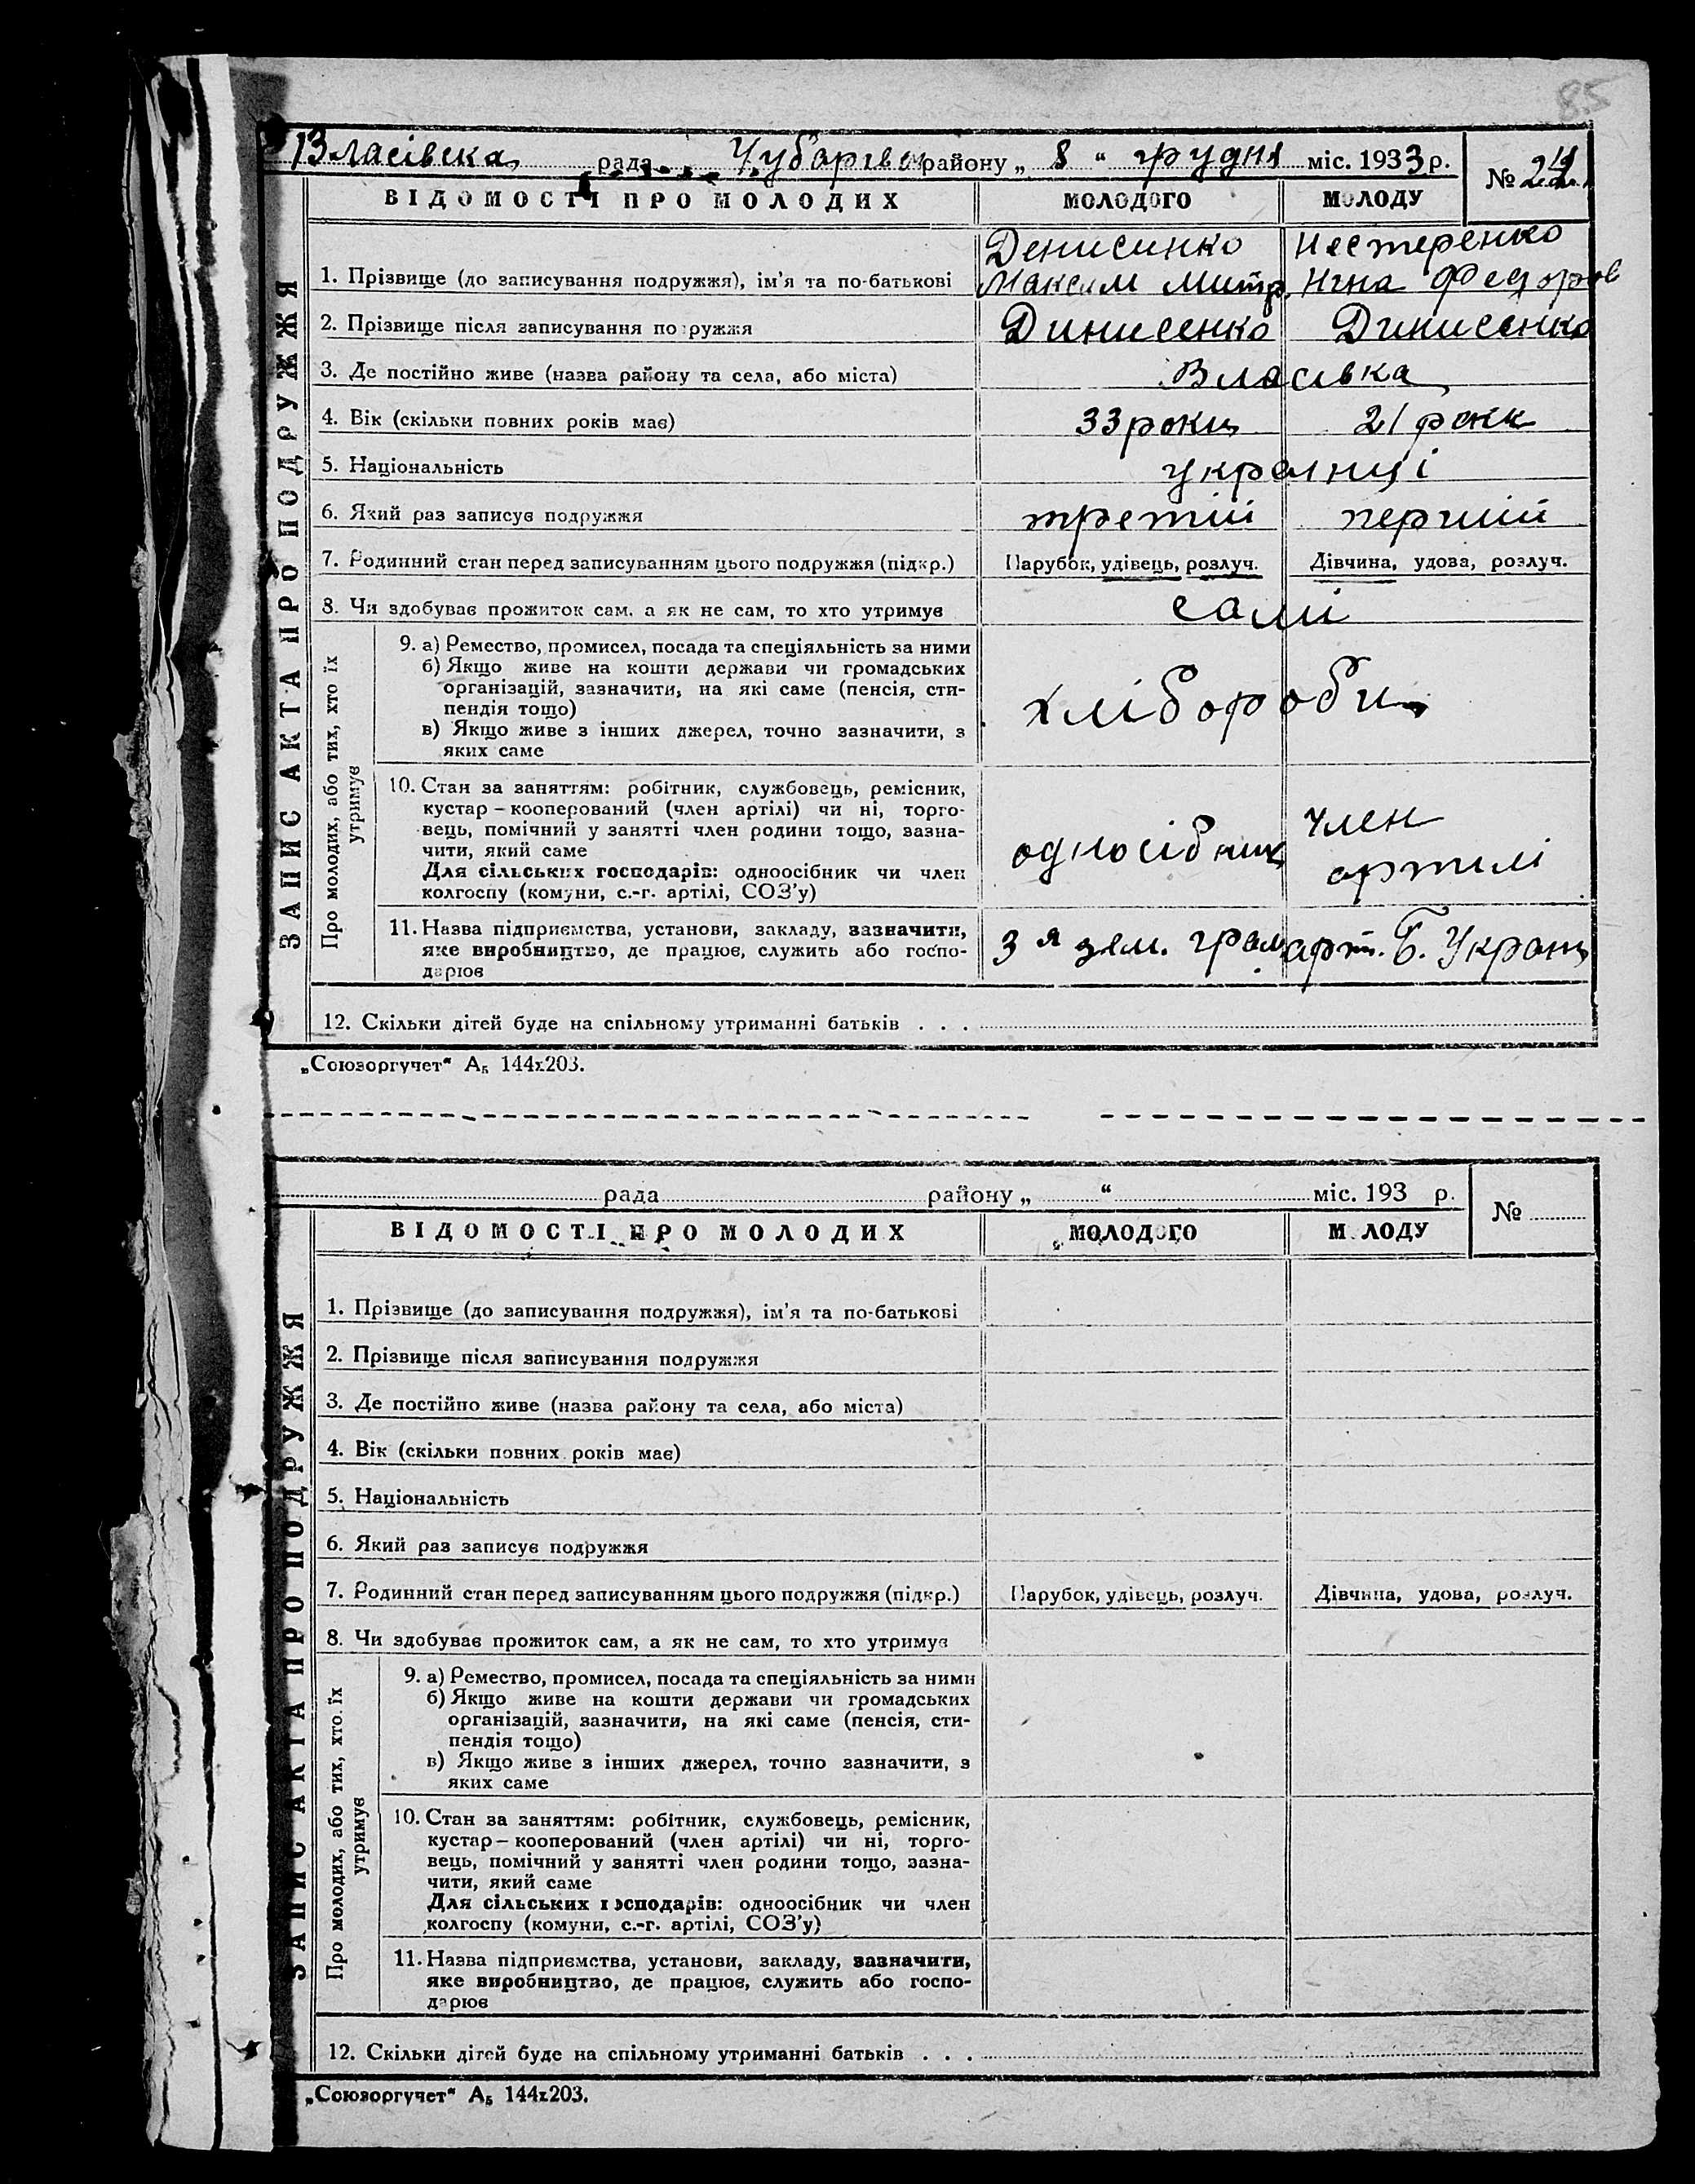 85
Власівска рада Чубарівск району „ 8 “ грудня міс. 1933 р.
№
ВІДОМОСТІ ПРО МОЛОДИХ МОЛОДОГО МОЛОДУ
ЗАПИС АКТА ПРО ПОДРУЖЖЯ
Денисинко Нестеренко
1. Прізвище (до записування подружжя), ім’я та по-батькові Максим Митр. Нина Федоров
2. Прізвище після записування подружжя Динисенко Динисенко
3. Де постійно живе (назва району та села, або міста) Власівка
4. Вік (скільки повних років має) 33 роки 21 рокк
5. Національність україниці
6. Який раз записує подружжя третій перший
7. Родинний стан перед записуванням цього подружжя (підкр.) Парубок, удівець, розлуч. Дівчина, удова, розлуч.
8. Чи здобуває прожиток сам, а як не сам, то хто утримує самі
Про молодих, або тих, хто їх
утримує
9. а) Ремество, промисел, посада та спеціяльність за ними
б) Якщо живе на кошти держави чи громадських
організацій, зазначити, на які саме (пенсія, сти-
пендія тощо)
хлібороби
в) Якщо живе з інших джерел, точно зазначити, з
яких саме
10. Стан за заняттям: робітник, службовець, ремісник,
кустар – кооперований (член артілі) чи ні, торго-
вець, помічний у занятті член родини тощо, зазна-
чити, який саме
Для сільських господарів: одноосібник чи член
колгоспу (комуни, с.-г. артілі, СОЗ’у)
односібник член
артилі
11. Назва підприємства, установи, закладу, зазначити,
яке виробництво, де працює, служить або госпо-
дарює
3 я зем. гром арт. Б. Украни
12. Скільки дітей буде на спільному утриманні батьків . . .
„Союзоргучет“ А₅ 144х203.
рада району „ “ міс. 193 р.
№
ВІДОМОСТІ ПРО МОЛОДИХ МОЛОДОГО МОЛОДУ
ЗАПИС АКТА ПРО ПОДРУЖЖЯ
1. Прізвище (до записування подружжя), ім’я та по-батькові
2. Прізвище після записування подружжя
3. Де постійно живе (назва району та села, або міста)
4. Вік (скільки повних років має)
5. Національність
6. Який раз записує подружжя
7. Родинний стан перед записуванням цього подружжя (підкр.) Парубок, удівець, розлуч. Дівчина, удова, розлуч.
8. Чи здобуває прожиток сам, а як не сам, то хто утримує
Про молодих, або тих, хто їх
утримує
9. а) Ремество, промисел, посада та спеціяльність за ними
б) Якщо живе на кошти держави чи громадських
організацій, зазначити, на які саме (пенсія, сти-
пендія тощо)
в) Якщо живе з інших джерел, точно зазначити, з
яких саме
10. Стан за заняттям: робітник, службовець, ремісник,
кустар – кооперований (член артілі) чи ні, торго-
вець, помічний у занятті член родини тощо, зазна-
чити, який саме
Для сільських господарів: одноосібник чи член
колгоспу (комуни, с.-г. артілі, СОЗ’у)
11. Назва підприємства, установи, закладу, зазначити,
яке виробництво, де працює, служить або госпо-
дарює
12. Скільки дітей буде на спільному утриманні батьків . . .
„Союзоргучет“ А₅ 144х203.